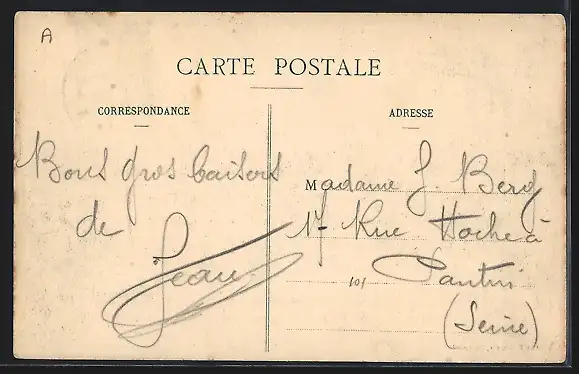 A
CARTE POSTALE
CORRESPONDANCE
Bons gros baisers
de
Jean
ADRESSE
Madame J. Berg
17 Rue Hoche à
101 Pantin
(Seine)